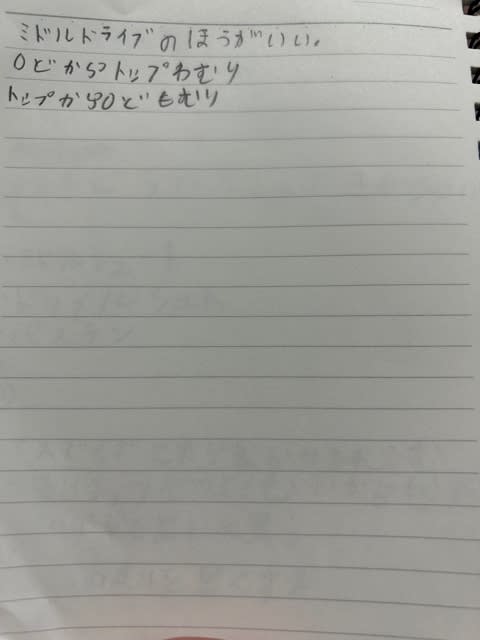 ミドルドライブのほうがいい。
0どからトップわむり
トップから90どもむり